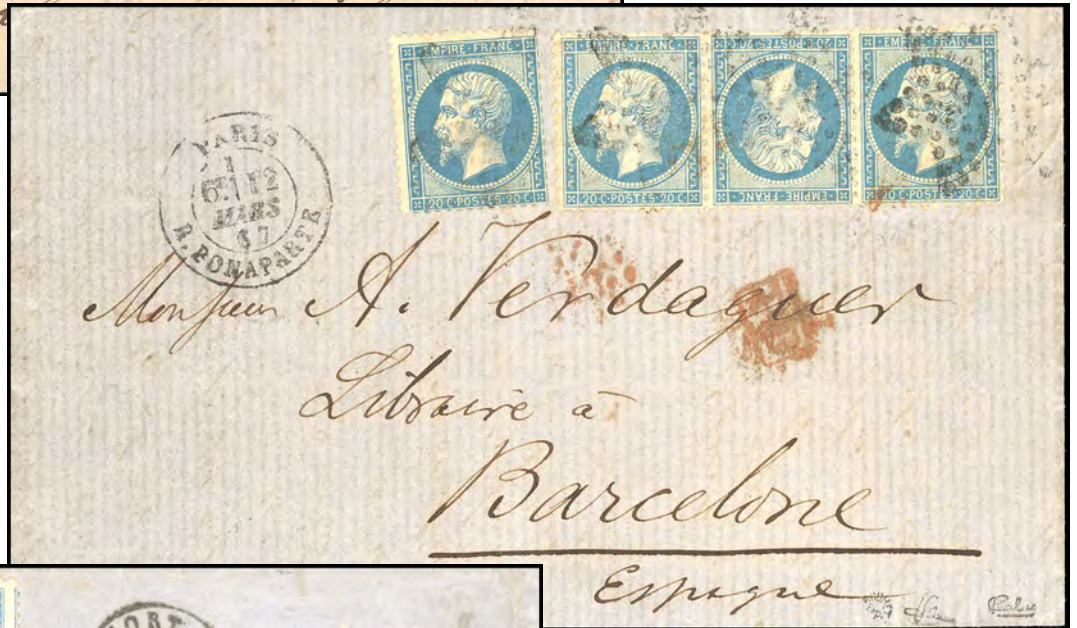 EMPIRE FRANC
20 C·POSTES·20 C
EMPIRE·FRANC·
20 C·POSTES·20 C
20·C·POSTES·20·C
EMPIRE FRANC
EMPIRE·FRANC·
20 C·POSTES·20 C
PARIS
1
12
MARS
67
R. BONAPARTE
Monsieur A. Verdaguer
Libraire à
Barcelone
Espagne